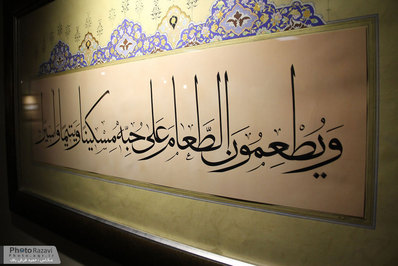 وَيُطْعِمُونَ الطَّعَامَ عَلَىٰ حُبِّهِ مِسْكِينًا وَيَتِيمًا وَأَسِيرًا
Photo Razavi